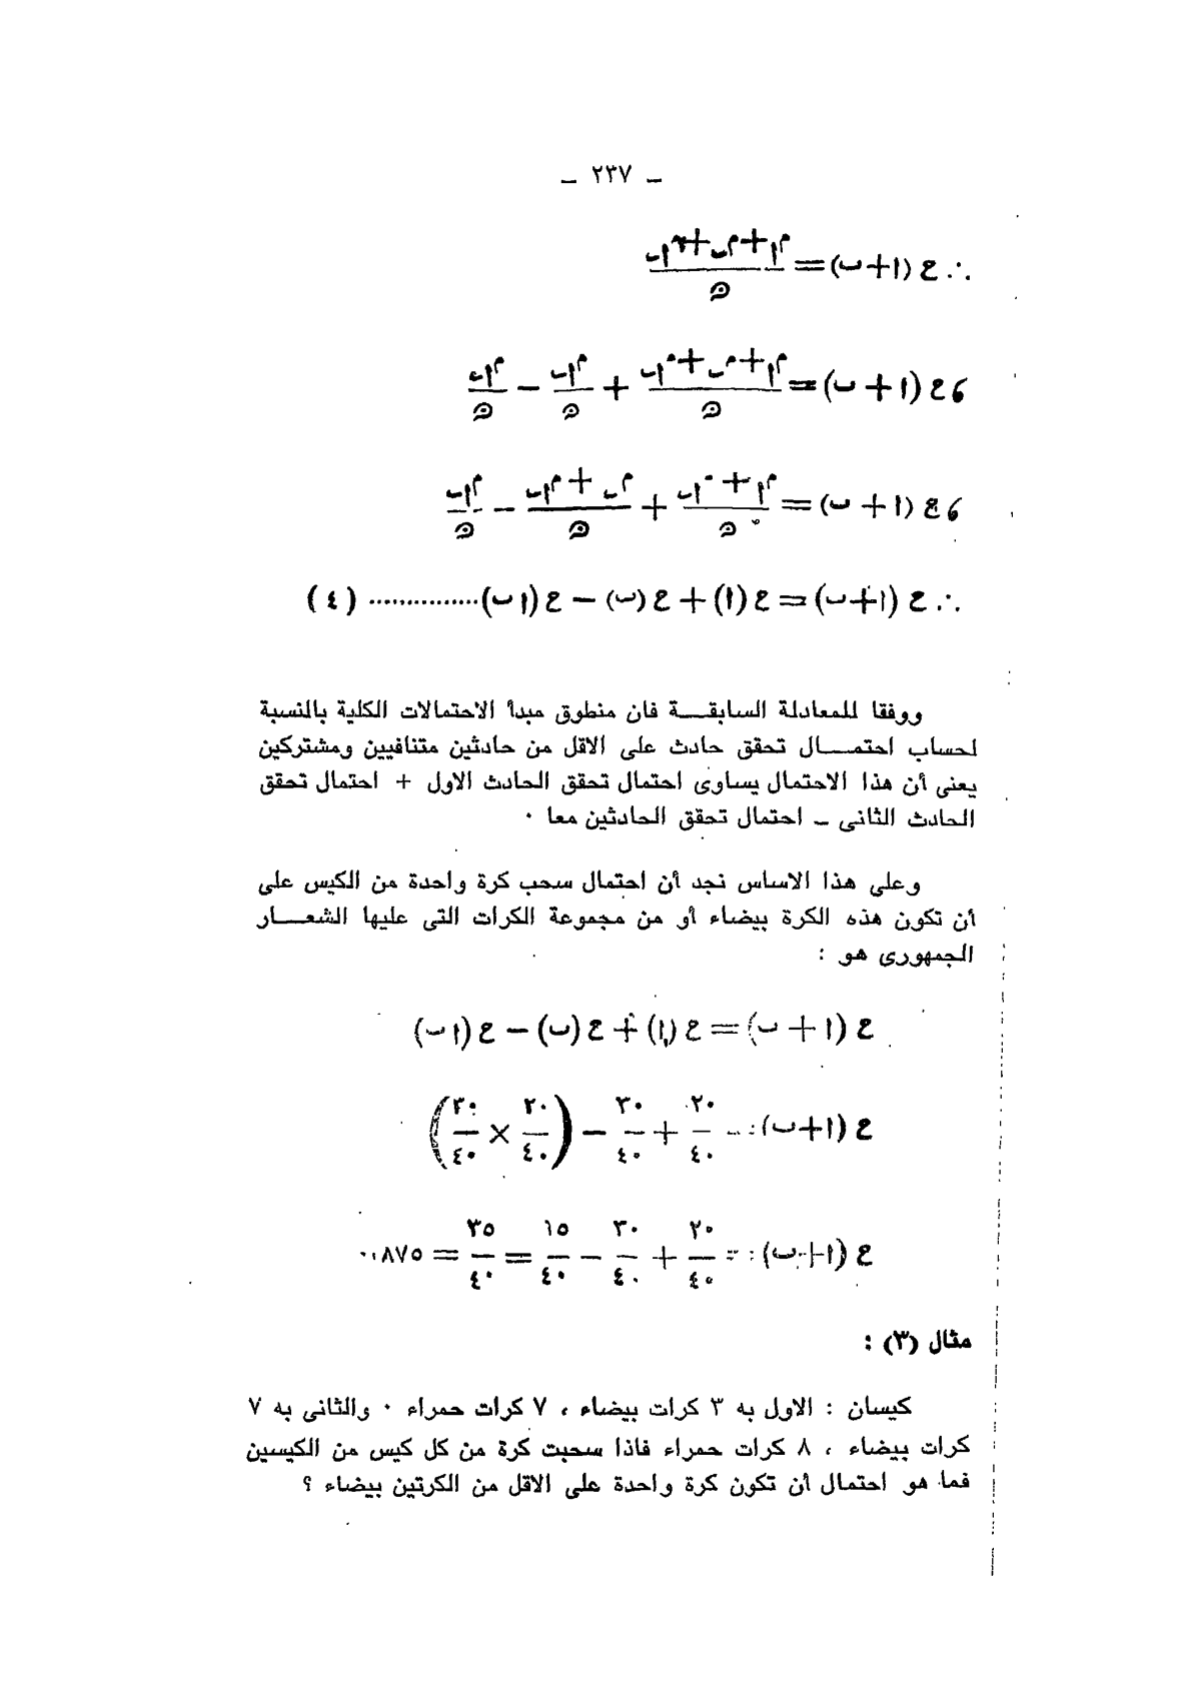 ـ ٢٣٧ ـ
∴ ع (ا+ب) = (م ا + م ب + م اب) / ن
، ع (ا + ب) = (م ا + م ب + م اب) / ن + م اب / ن − م اب / ن
، ع (ا + ب) = (م ا + م اب) / ن + (م ب + م اب) / ن − م اب / ن
∴ ع (ا+ب) = ع (ا) + ع (ب) − ع (اب) ............... (٤)
ووفقا للمعادلة السابقـــة فان منطوق مبدأ الاحتمالات الكلية بالنسبة
لحساب احتمـــال تحقق حادث على الاقل من حادثين متنافيين ومشتركين
يعنى أن هذا الاحتمال يساوى احتمال تحقق الحادث الاول + احتمال تحقق
الحادث الثانى ــ احتمال تحقق الحادثين معا ٠
وعلى هذا الاساس نجد أن احتمال سحب كرة واحدة من الكيس على
أن تكون هذه الكرة بيضاء أو من مجموعة الكرات التى عليها الشعـــار
الجمهورى هو :
ع (ا + ب) = ع (ا) + ع (ب) − ع (اب)
ع (ا+ب) = ٢٠/٤٠ + ٣٠/٤٠ − (٢٠/٤٠ × ٣٠/٤٠)
ع (ا+ب) = ٢٠/٤٠ + ٣٠/٤٠ − ١٥/٤٠ = ٣٥/٤٠ = ٠,٨٧٥
مثال (٣) :
كيسان : الاول به ٣ كرات بيضاء ، ٧ كرات حمراء ٠ والثانى به ٧
كرات بيضاء ، ٨ كرات حمراء فاذا سحبت كرة من كل كيس من الكيسين
فما هو احتمال أن تكون كرة واحدة على الاقل من الكرتين بيضاء ؟